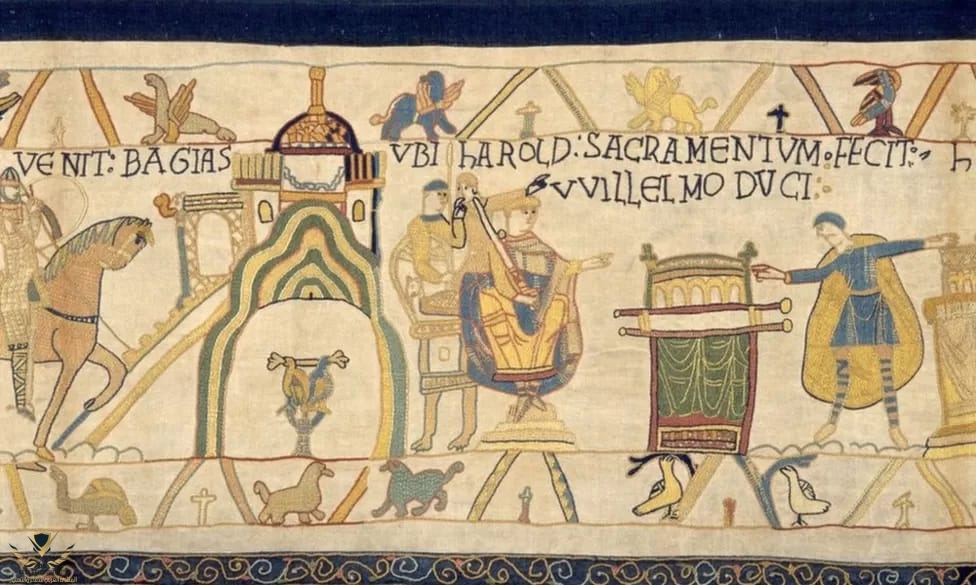 VENIT: BAGIAS VBI hAROLD: SACRAMENTVM: FECIT:
VVILLELMO DVCI:
h